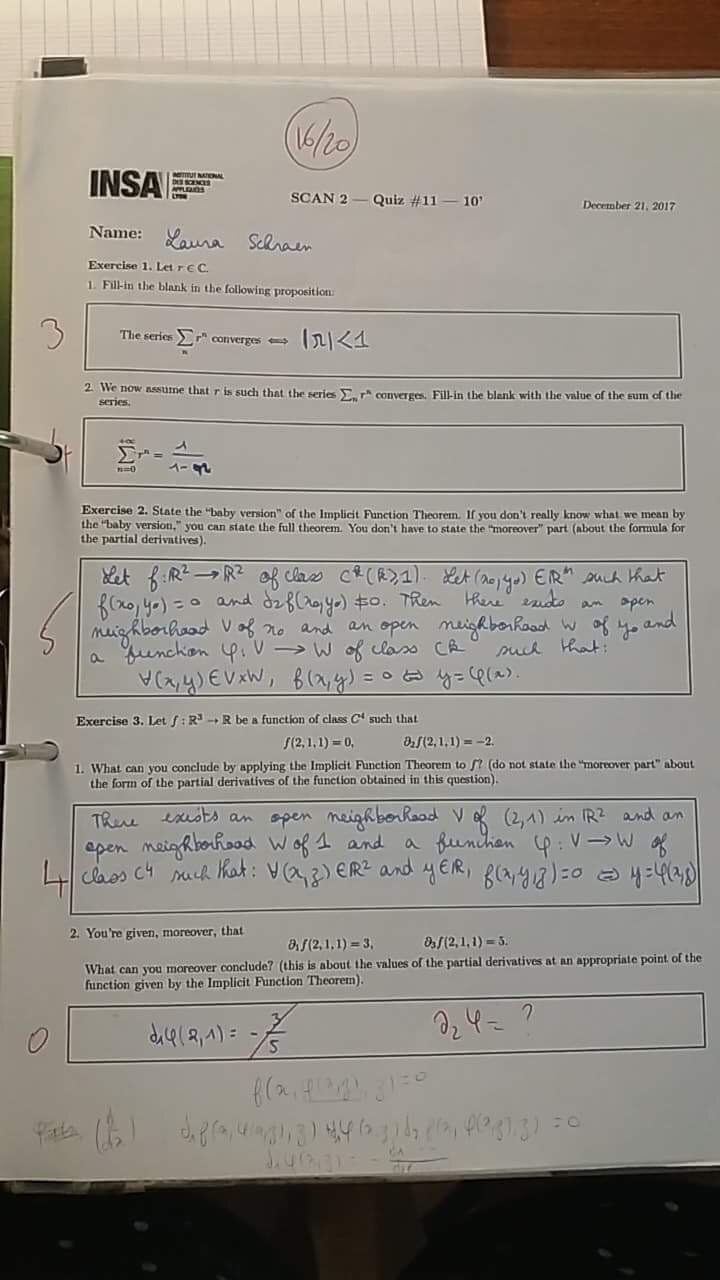 16/20
INSA INSTITUT NATIONAL
DES SCIENCES
APPLIQUÉES
LYON
SCAN 2 — Quiz #11 — 10'
December 21, 2017
Name: Laura Schraen
Exercise 1. Let r ∈ C.
1. Fill-in the blank in the following proposition:
3
The series ∑ₙ rⁿ converges ⟺ |r|<1
2. We now assume that r is such that the series ∑ₙ rⁿ converges. Fill-in the blank with the value of the sum of the
series.
4
+∞ ∑ n=0 rⁿ = 1/(1-r)
Exercise 2. State the “baby version” of the Implicit Function Theorem. If you don't really know what we mean by
the “baby version,” you can state the full theorem. You don't have to state the “moreover” part (about the formula for
the partial derivatives).
5
Let f: ℝ² → ℝ² of class Cᵏ (k≥1). Let (x₀,y₀) ∈ ℝⁿ such that
f(x₀,y₀) = 0 and ∂₂f(x₀,y₀) ≠ 0. Then there exists an open
neighborhood V of x₀ and an open neighborhood W of y₀ and
a function φ: V → W of class Cᵏ such that:
∀(x,y) ∈ V×W, f(x,y) = 0 ⇔ y=φ(x).
Exercise 3. Let f : R³ → R be a function of class C⁴ such that
f(2,1,1) = 0, ∂₂f(2,1,1) = −2.
1. What can you conclude by applying the Implicit Function Theorem to f? (do not state the “moreover part” about
the form of the partial derivatives of the function obtained in this question).
4
There exists an open neighborhood V of (2,1) in ℝ² and an
open neighborhood W of 1 and a function φ: V → W of
class C⁴ such that: ∀(x,z) ∈ ℝ² and y∈ℝ, f(x,y,z)=0 ⇔ y=φ(x,z)
2. You're given, moreover, that
∂₁f(2,1,1) = 3, ∂₃f(2,1,1) = 5.
What can you moreover conclude? (this is about the values of the partial derivatives at an appropriate point of the
function given by the Implicit Function Theorem).
0
∂₁φ(2,1) = -3/5 ∂₂φ = ?
f(x, φ(x,z), z) = 0
∂₁f(x, φ(x,z), z) ∂₁φ(x,z) ∂₂f(x, φ(x,z), z) = 0
∂₁φ(x,z) = -